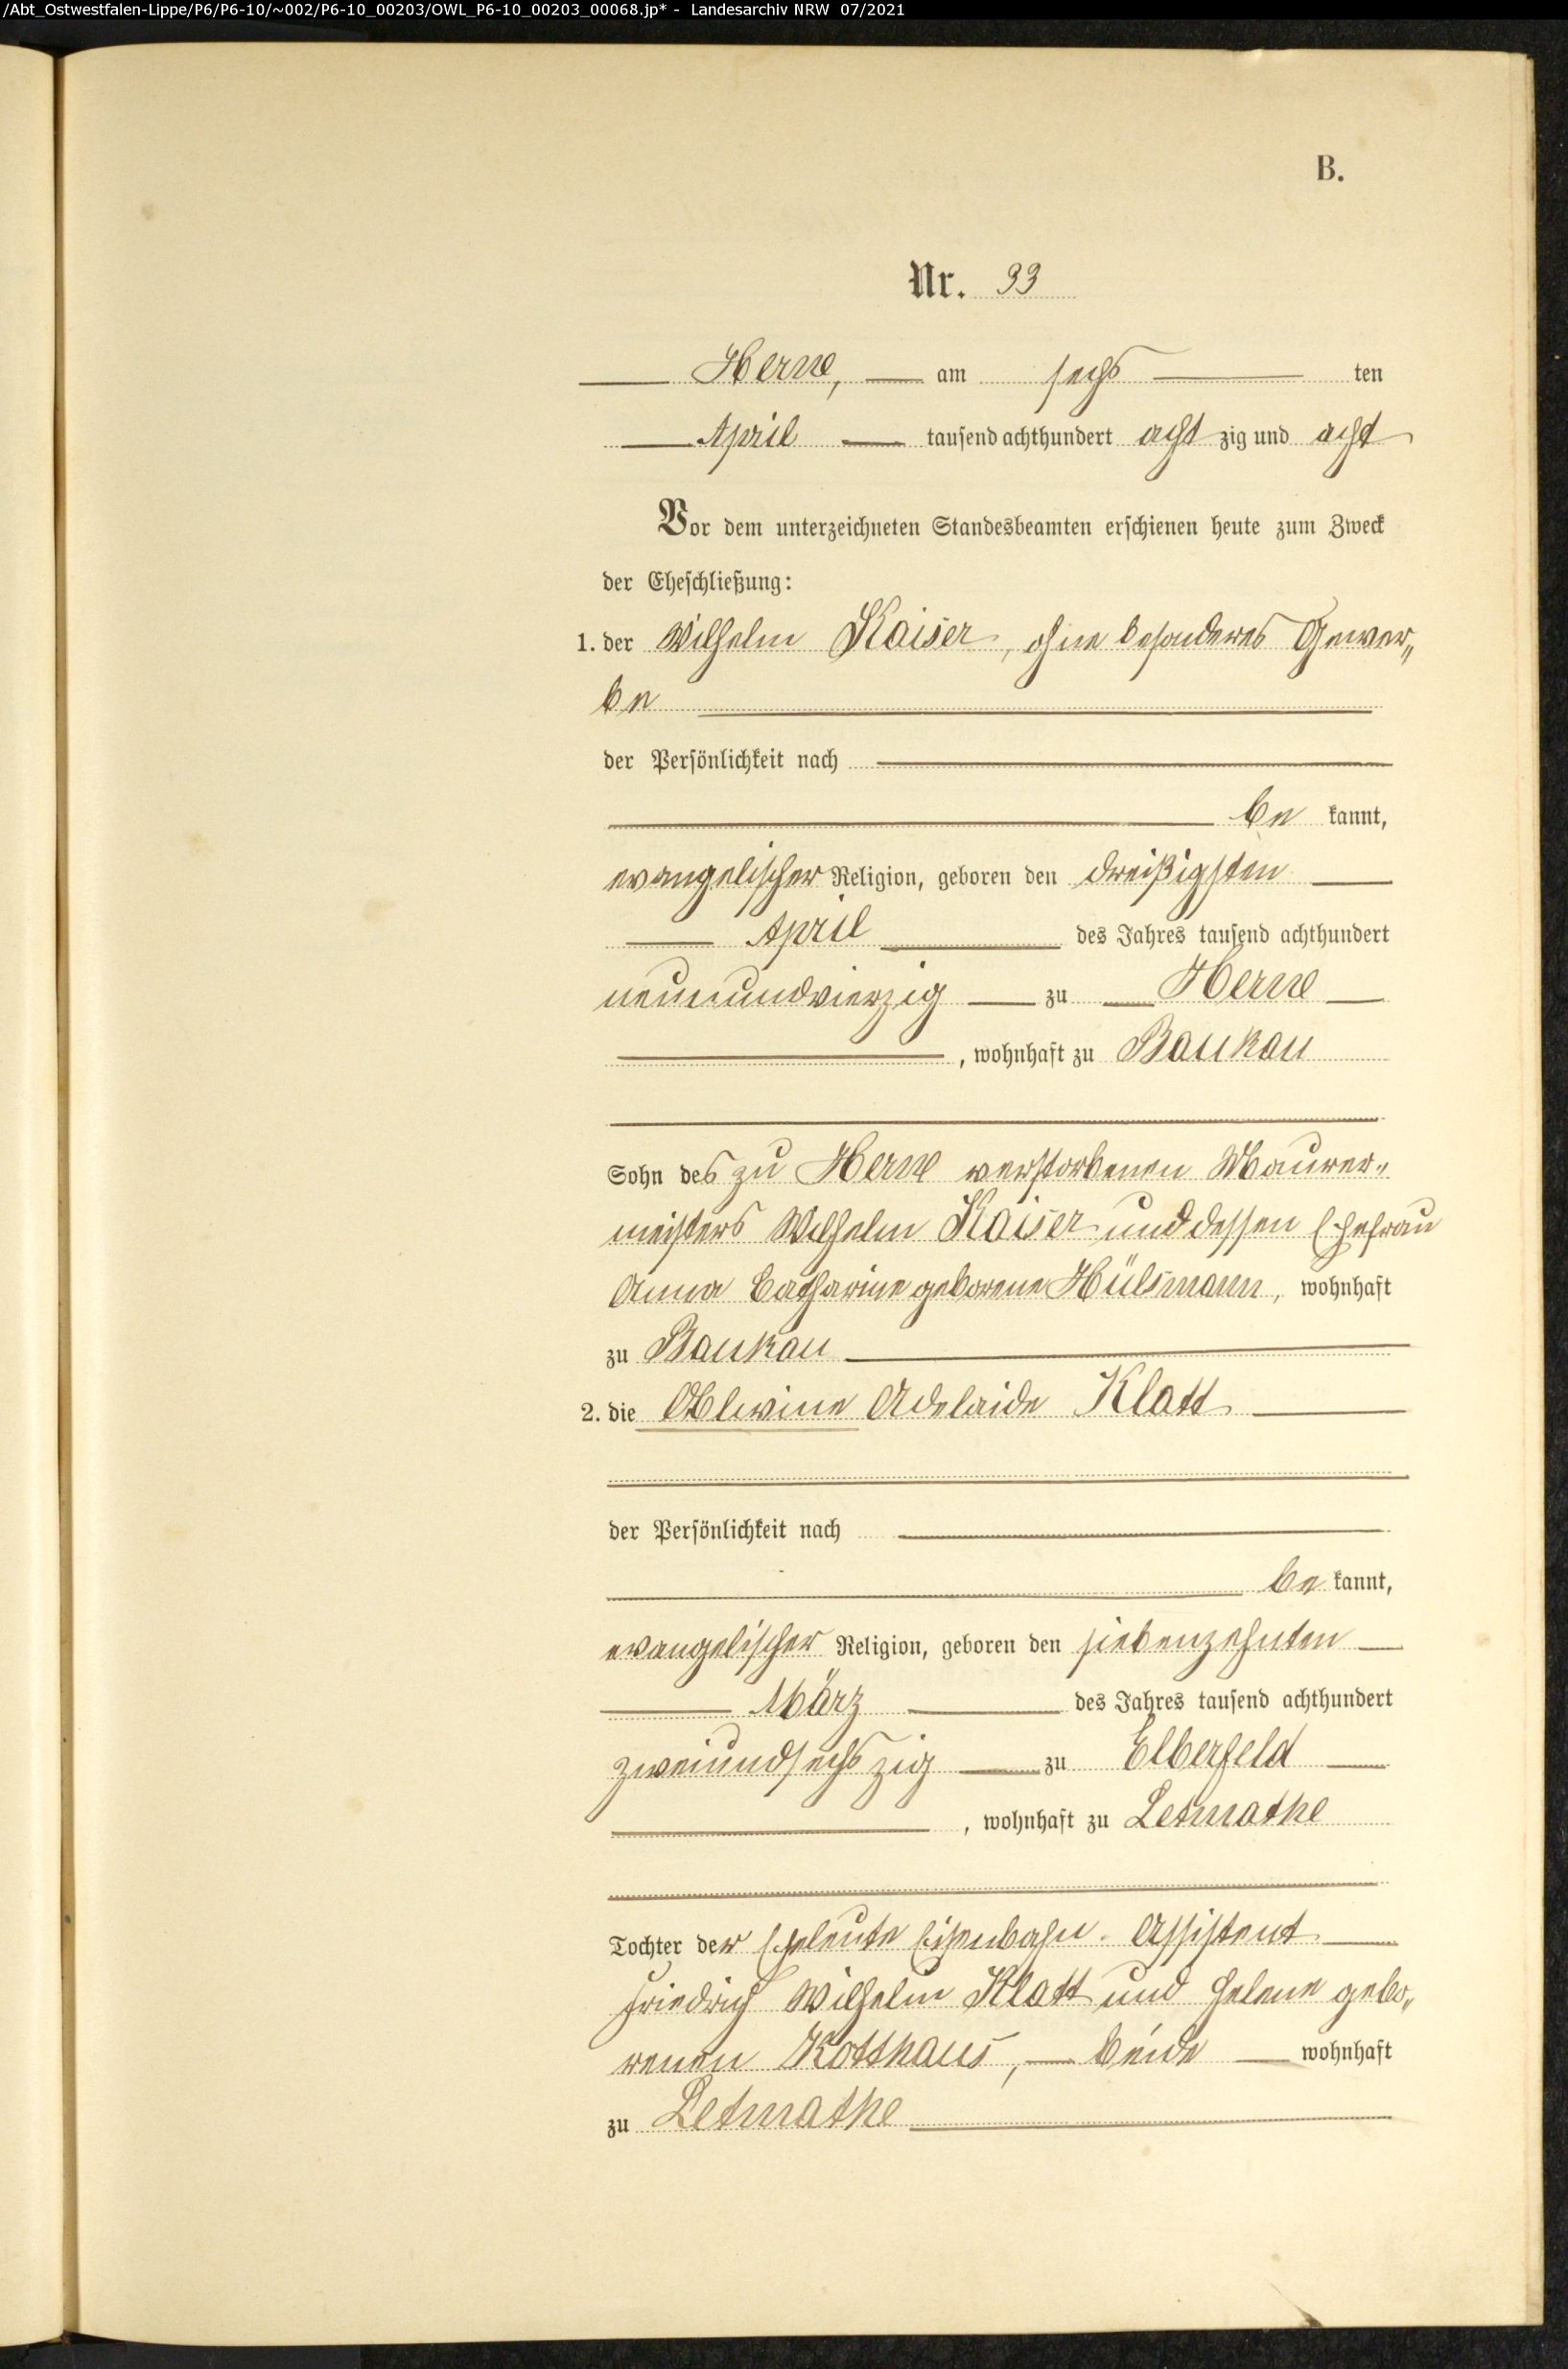 /Abt_Ostwestfalen-Lippe/P6/P6-10/~002/P6-10_00203/OWL_P6-10_00203_00068.jp* - Landesarchiv NRW 07/2021
B.
Nr. 33
Herne, am sechs ten
April tausend achthundert acht zig und acht
Vor dem unterzeichneten Standesbeamten erschienen heute zum Zweck
der Eheschließung:
1. der Wilhelm Kaiser, ohne besonderes Gewer„
be
der Persönlichkeit nach
be kannt,
evangelischer Religion, geboren den dreißigsten
April des Jahres tausend achthundert
neunundvierzig zu Herne
, wohnhaft zu Baukau
Sohn des zu Herne verstorbenen Maurer„
meisters Wilhelm Kaiser und dessen Ehefrau
Anna Catharine geborene Hülsmann, wohnhaft
zu Baukau
2. die Adelaide Klatt
der Persönlichkeit nach
be kannt,
evangelischer Religion, geboren den siebenzehnten
März des Jahres tausend achthundert
zweiundsechszig zu Elberfeld
, wohnhaft zu Letmathe
Tochter der Eheleute Eisenbahn-Assistent
Friedrich Wilhelm Klatt und Helene gebo„
renen Kotthaus, beide wohnhaft
zu Letmathe